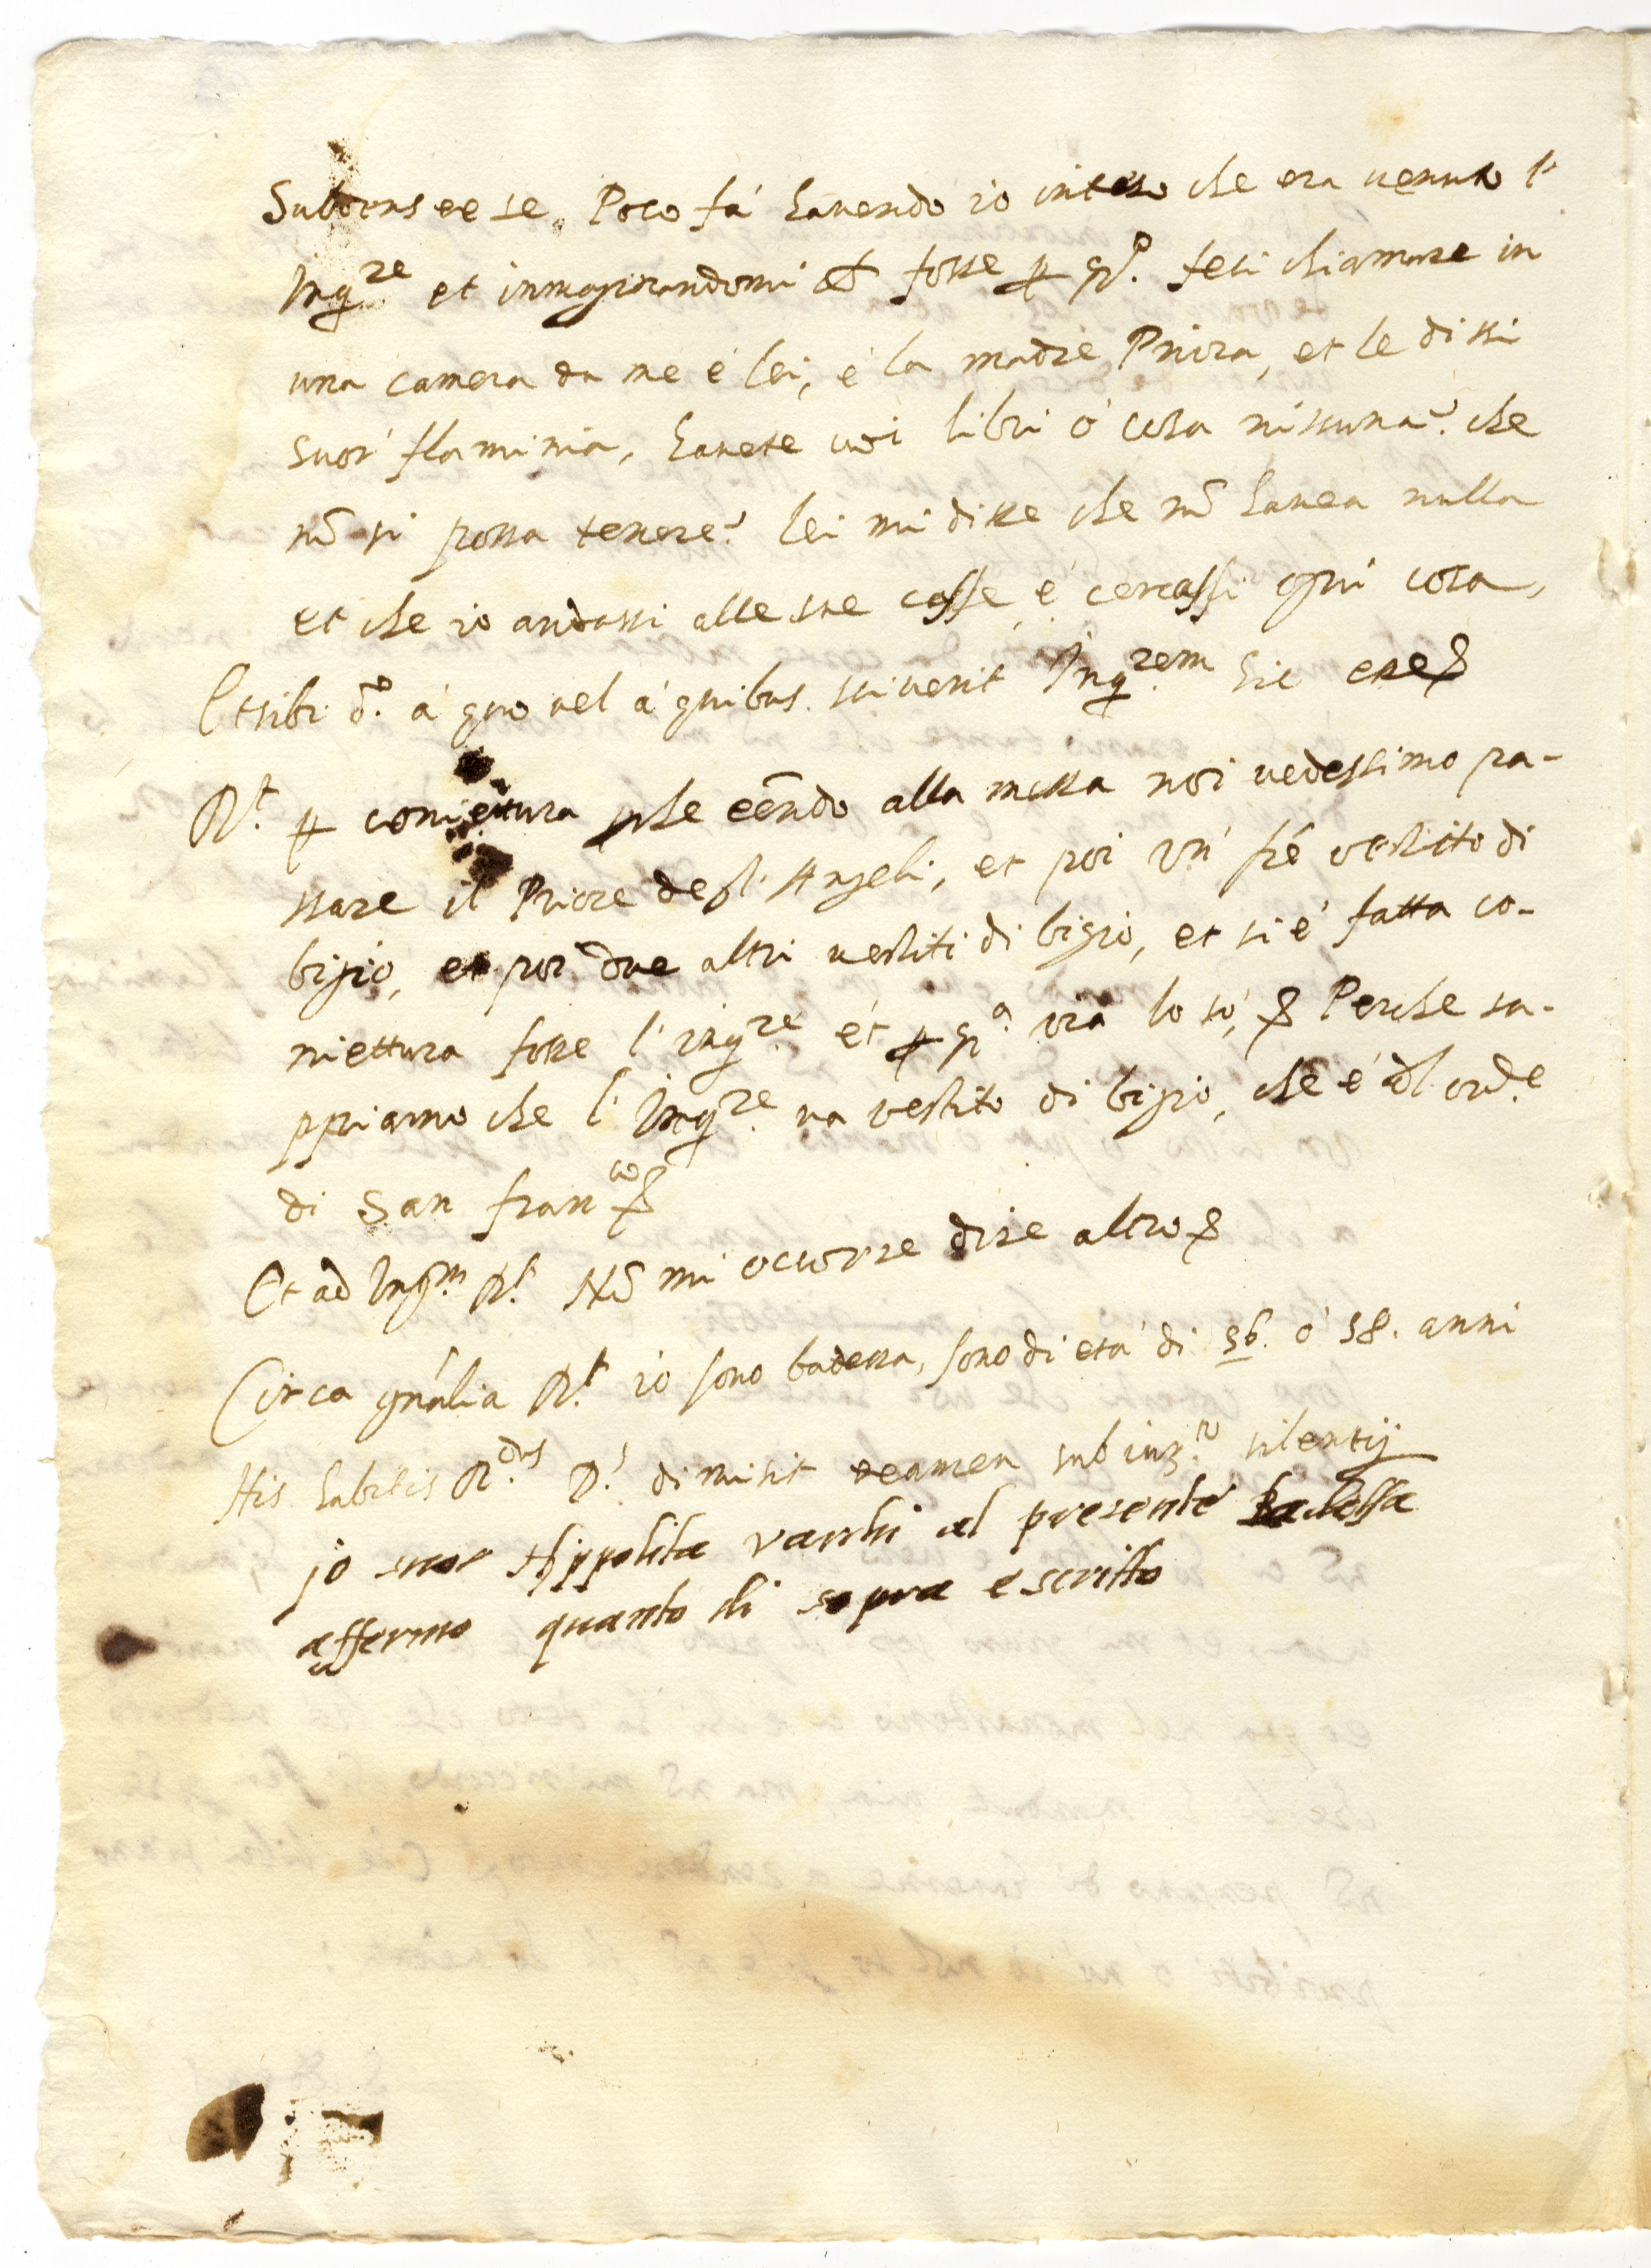 Subiens ex se. Poco fà havendo io inteso che era venuto l'
Inqre et immaginandomi che fosse p qo. feci chiamare in
una camera da me è lei, è la madre Priora, et le dissi
suor' flaminia, havete voi libri ò cosa nissuna? che
nō si possa tenere? lei mi disse che nō havea nulla
et che io andassi alle sue casse, è cercassi ogni cosa,
Et sibi do. à quo vel à quibus sciverit Inqrem hic esse
Rt. p coniettura pche eēndo alla messa noi vedessimo pa-
ssare il Priore degl' Angeli, et poi un' frē vestito di
bigio, et poi due altri vestiti di bigio, et si è fatta co-
niettura fosse l' inqre et p qa via lo sò, Perche sa-
ppiamo che l' Inqre va vestito di bigio, che è dl ord.e
di San franco
Et ad Intm. Rt. Nō mi occorre dire altro
Circa gnālia Rt. io sono badessa, sono di età di 56. ò 58. anni
His habitis R.dus P.r dimisit examen sub iur.to silentij
jo suor Hippolita varchi al presente badessa
affermo quanto di sopra e scritto